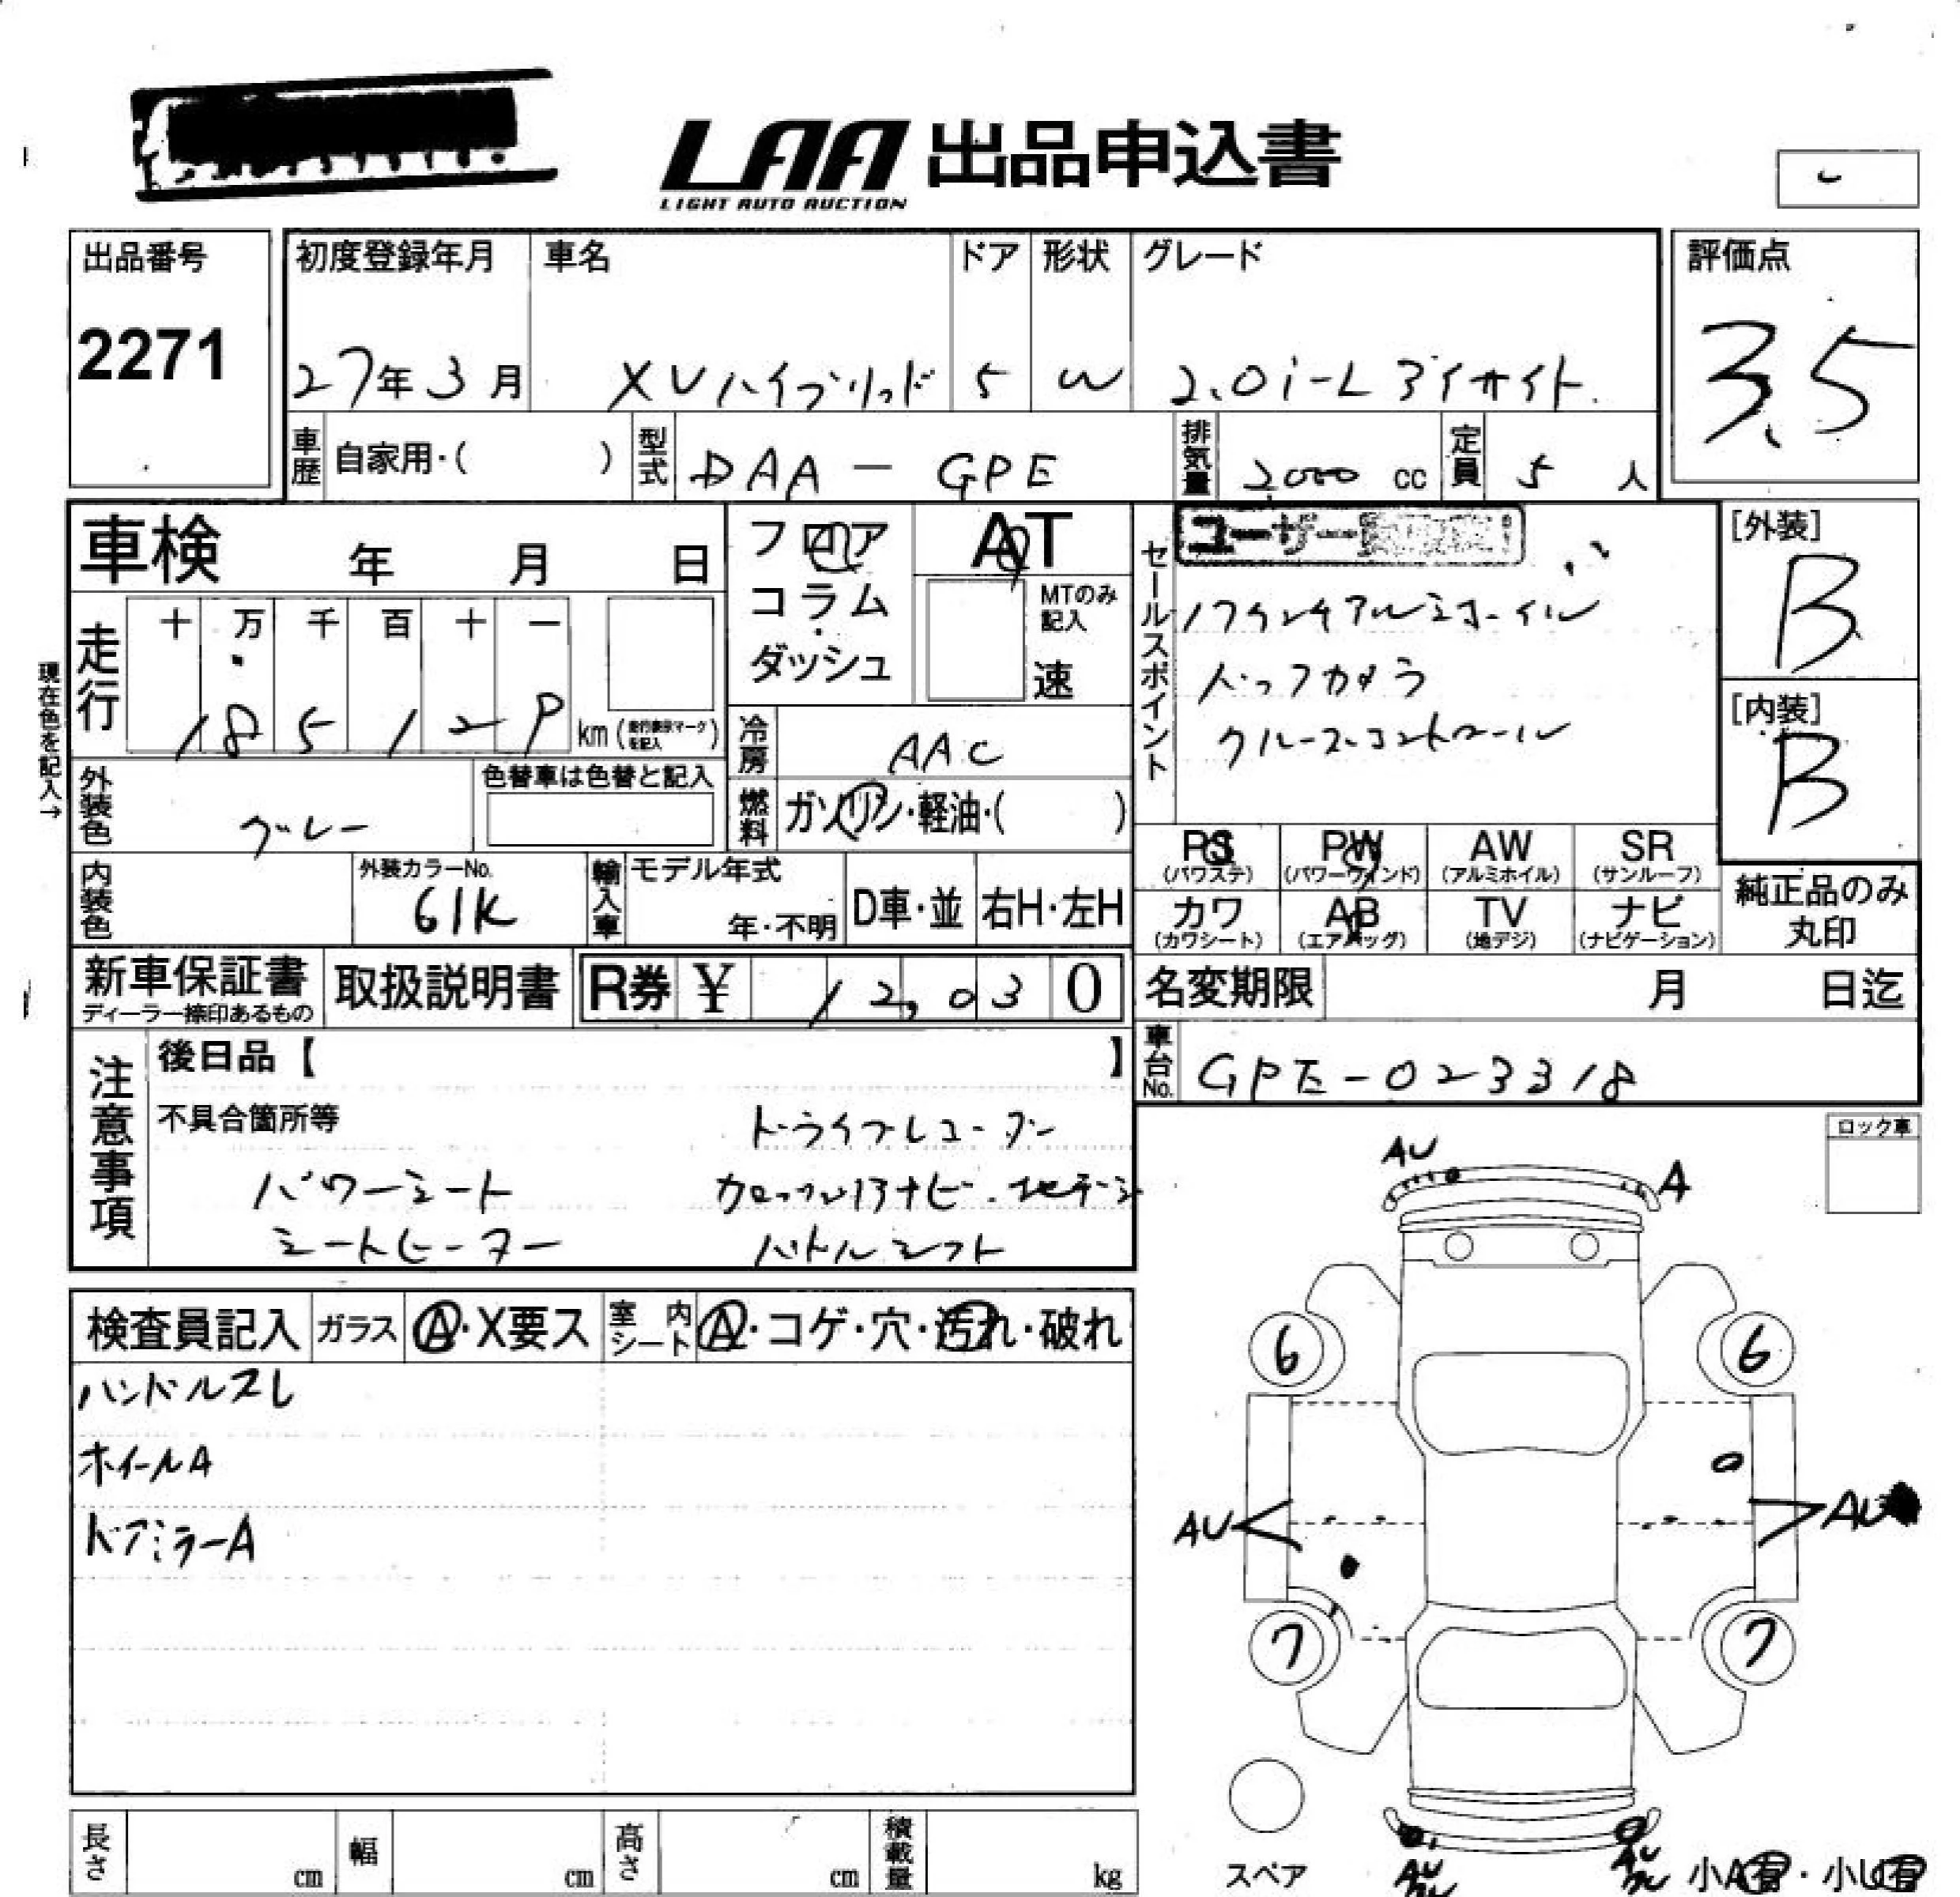 LAA 出品申込書
LIGHT AUTO AUCTION
出品番号
2271
初度登録年月
27年3月
車名
XVハイブリッド
ドア
5
形状
W
グレード
2.0i-Lアイサイト
評価点
3.5
車歴 自家用・( )
型式 DAA-GPE
排気量 2000 cc
定員 5 人
車検 年 月 日
フロア
コラム
・
ダッシュ
AT
MTのみ
記入
速
セールスポイント
ユーザー
17インチアルミホイール
バックカメラ
クルーズコントロール
[外装]
B
[内装]
B
現在色を記入→
走行
十 万 千 百 十 一
185129 km
冷房 AAC
外装色 グレー
色替車は色替と記入
燃料 ガソリン・軽油・( )
PS
(パワステ)
PW
(パワーウインド)
AW
(アルミホイル)
SR
(サンルーフ)
カワ
(カワシート)
AB
(エアバッグ)
TV
(地デジ)
ナビ
(ナビゲーション)
純正品のみ
丸印
内装色
外装カラーNo.
61K
輸入車
モデル年式
年・不明
D車・並
右H・左H
新車保証書
ディーラー捺印あるもの
取扱説明書
R券 ¥ 12,030
名変期限 月 日迄
車台No. GPE-023318
注意事項
後日品【 】
不具合箇所等
ドライブレコーダー
パワーシート
ナビ 地デジ
シートヒーター
パドルシフト
ロック車
AU
A
検査員記入
ガラス
A・X要ス
室内シート
A・コゲ・穴・汚れ・破れ
ハンドルスレ
ホイールA
ドアミラーA
6
6
AU
AU
7
7
スペア
AU
AU
小A有・小U有
長さ cm
幅 cm
高さ cm
積載量 kg